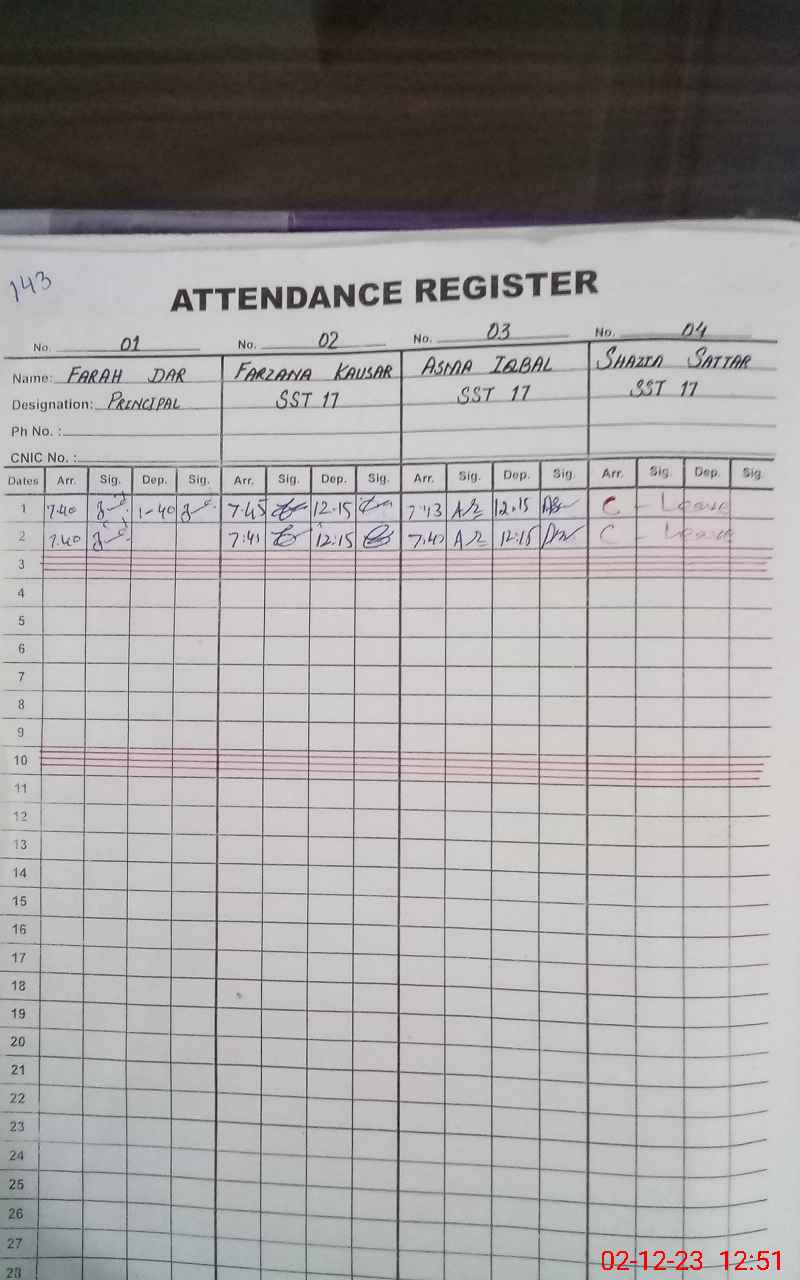 143
ATTENDANCE REGISTER
No. 01 No. 02 No. 03 No. 04
Name: FARAH DAR FARZANA KAUSAR ASMA IQBAL SHAZIA SATTAR
Designation: PRINCIPAL SST 17 SST 17 SST 17
Ph No. :
CNIC No. :
Dates Arr. Sig. Dep. Sig. Arr. Sig. Dep. Sig. Arr. Sig. Dep. Sig. Arr. Sig. Dep. Sig.
1 7.40 1-40 7.45 12.15 7.43 12.15 C - Leave
2 7.40 7:41 12:15 12:15 C - Leave
3
4
5
6
7
8
9
10
11
12
13
14
15
16
17
18
19
20
21
22
23
24
25
26
27
28
02-12-23 12:51